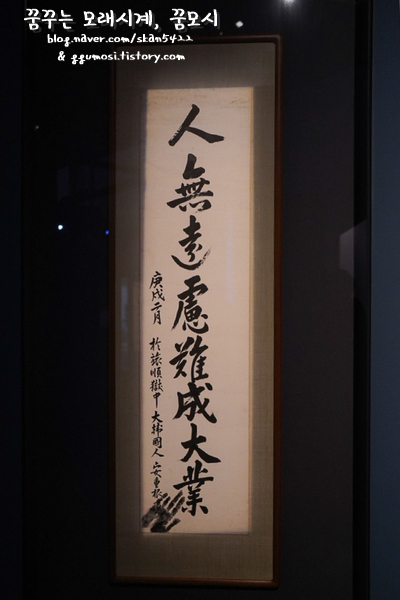 꿈꾸는 모래시계, 꿈모시
blog.naver.com/skan5422
& ggumosi.tistory.com
人無遠慮難成大業
庚戌二月 於旅順獄中 大韓國人 安重根 書